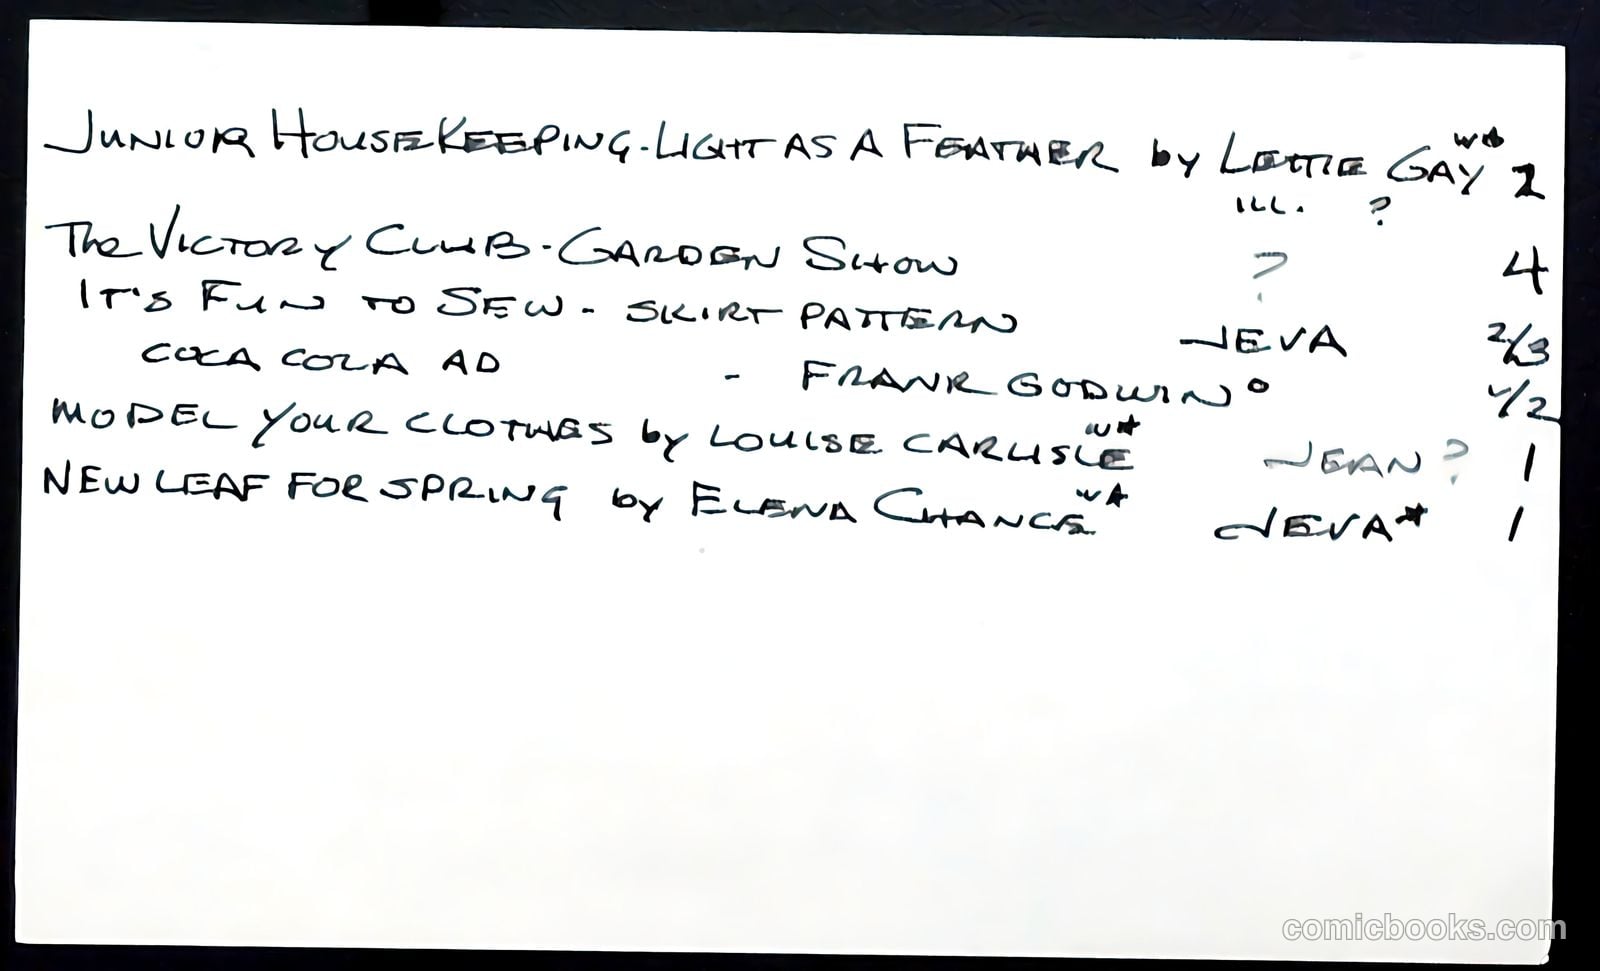 JUNIOR HOUSEKEEPING-LIGHT AS A FEATHER by LETTIE GAY W* 2
ILL. ?
The VICTORY CLUB-GARDEN SHOW ? 4
IT'S FUN TO SEW - SKIRT PATTERN JEVA 2/3
COCA COLA AD - FRANK GODWIN° 1/2
MODEL YOUR CLOTHES by LOUISE CARLISLE W* JEAN? 1
NEW LEAF FOR SPRING by ELENA CHANCE W* JEVA* 1
comicbooks.com